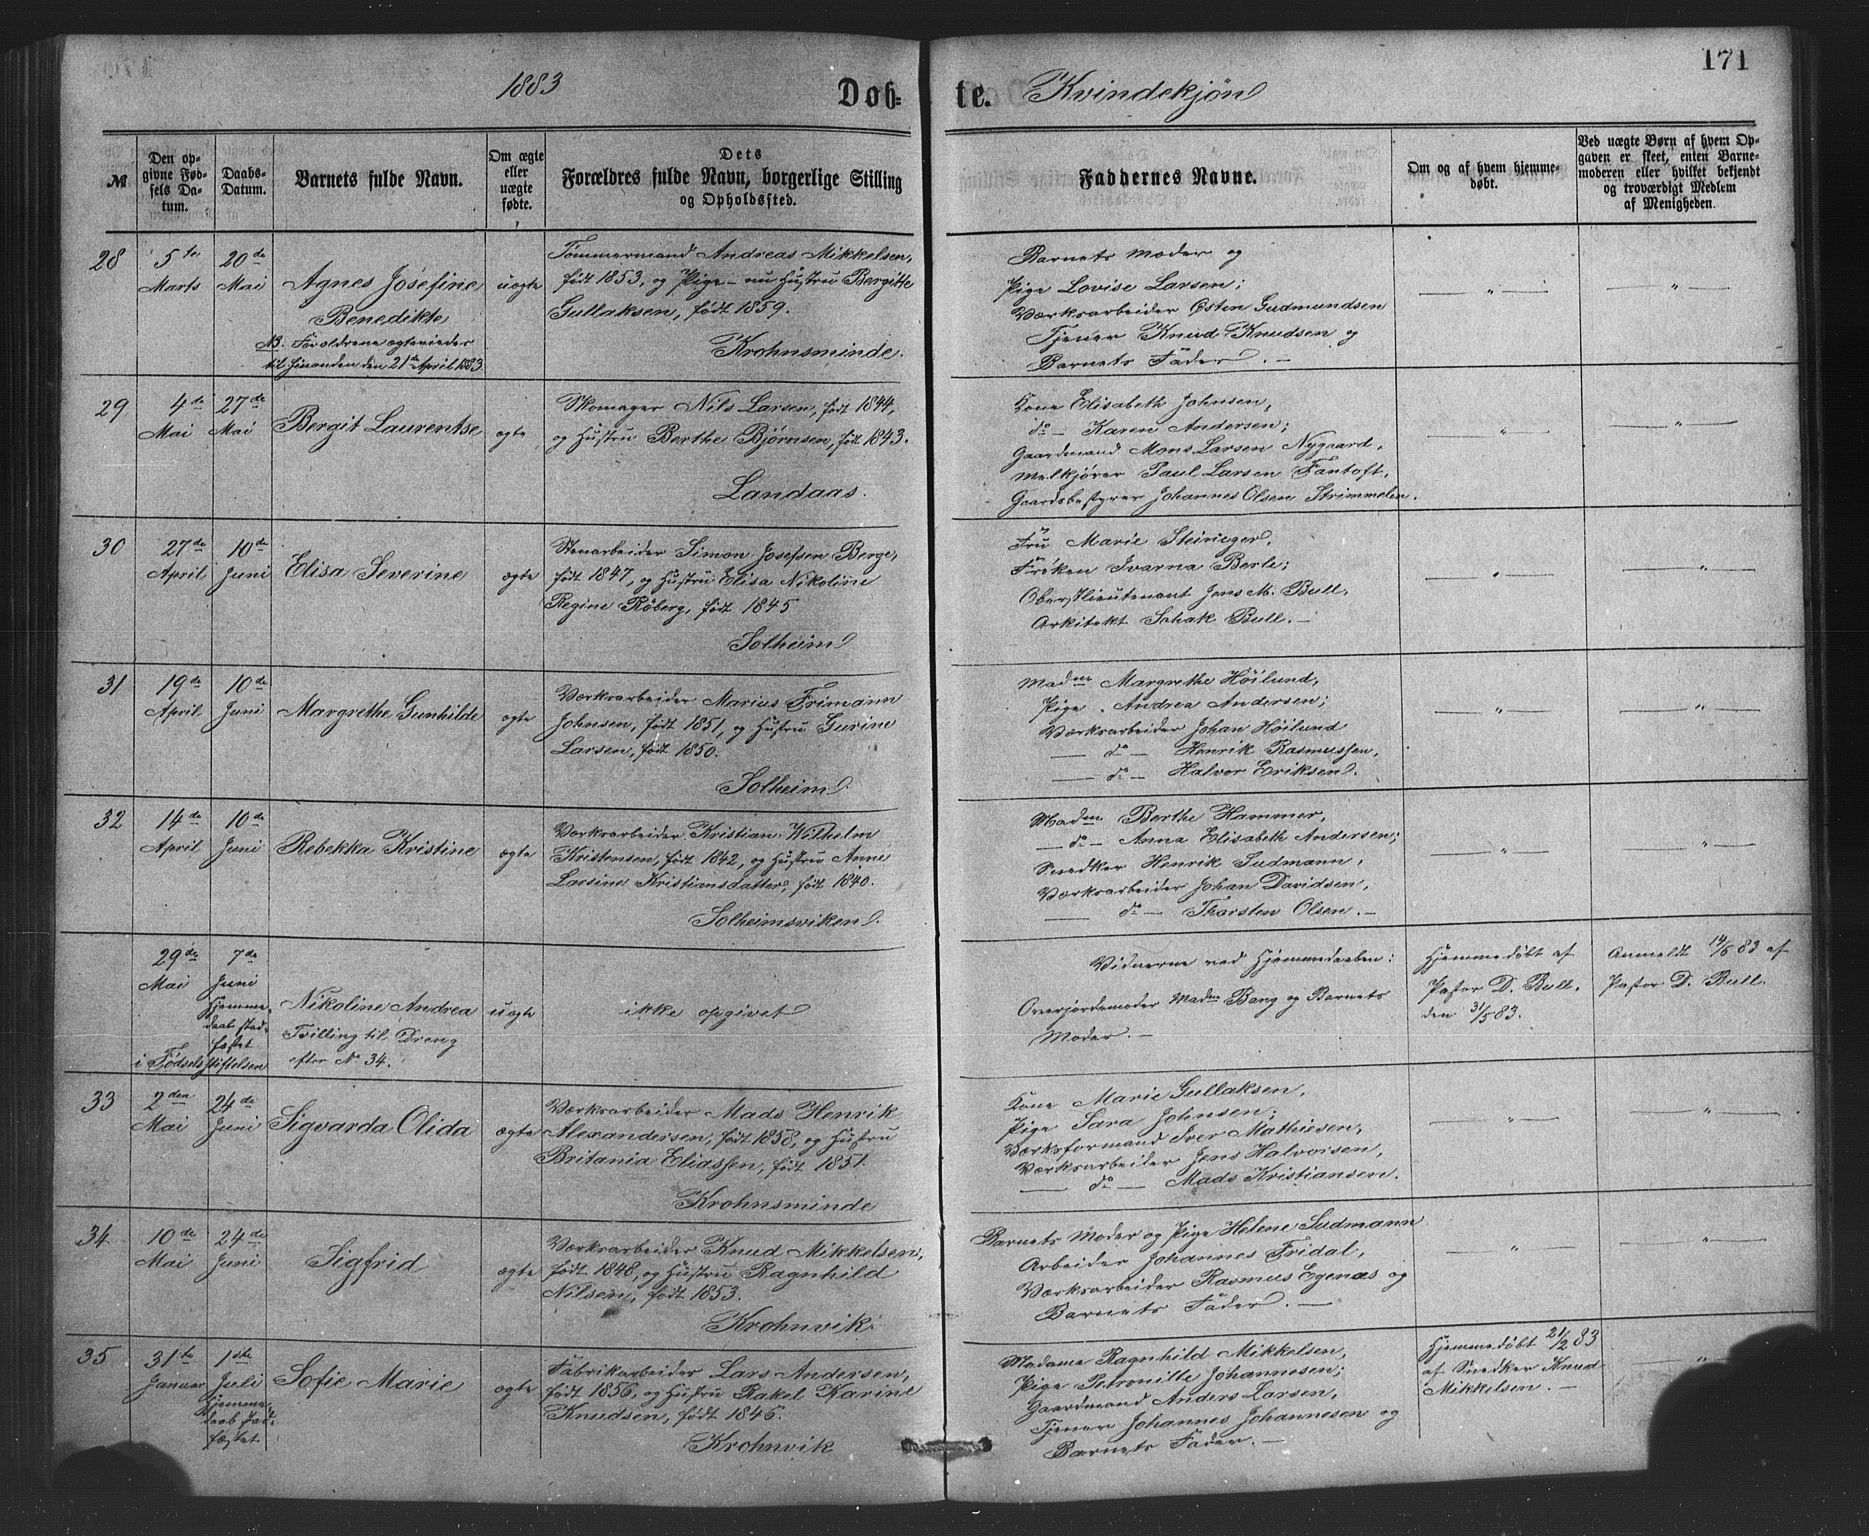 171
1883 Døb= te. Kvindekjøn
№
Den op-
givne Fød-
sels Da-
tum.
Daabs-
Datum.
Barnets fulde Navn.
Om ægte
eller
uægte
fødte.
Dets
Forældres fulde Navn, borgerlige Stilling
og Opholdssted.
Faddernes Navne.
Om og af hvem hjemme-
døbt.
Ved uægte Børn af hvem Op-
gaven er skeet, enten Barne-
moderen eller hvilket bekjendt
og troværdigt Medlem
af Menigheden.
28
5te
Marts
20de
Mai
Agnes Josefine
Benedikte
NB. Forældrene ægteviedes
til hinanden den 21de April 1883
uægte
Tømmermand Andreas Mikkelsen,
født 1853, og Pige - nu Hustru Bergitte
Gullaksen, født 1859.
Krohnsminde.
Barnets Moder og
Pige Lovise Larsen;
Værksarbeider Østen Gudmundsen
Tjener Knud Knudsen og
Barnets Fader. —
— " —
— " —
29
4de
Mai
27de
Mai
Bergit Laurentse
ægte
Skomager Nils Larsen, født 1844,
og Hustru Berthe Bjørnsen, født 1843.
Landaas.
Kone Elisabeth Johnsen,
do — Karen Andersen;
Gaardmand Mons Larsen Nygaard,
Melkjører Paul Larsen Fantoft,
Gaardsbestyrer Johannes Olsen Strimmelen.
— " —
— " —
30
27de
April
10de
Juni
Elisa Severine
ægte
Stenarbeider Simon Josefsen Berge,
født 1847, og Hustru Elisa Nikoline
Regine Røberg, født 1845
Solheim
Fru Marie Steineger,
Frøken Ivarna Berle;
Oberstlieutenant Jens M. Bull,
Arkitekt Schak Bull. —
— " —
— " —
31
19de
April
10de
Juni
Margrethe Gunhilde
ægte
Værksarbeider Marius Frimann
Johnsen, født 1851, og Hustru Gurine
Larsen, født 1850.
Solheim.
Madme Margrethe Höilund,
Pige Andrea Andersen;
Værksarbeider Johan Höilund
— do — Henrik Rasmussen,
— do — Halvor Eriksen.
— " —
— " —
32
14de
April
10de
Juni
Rebekka Kristine
ægte
Værksarbeider Kristian Wilhelm
Kristensen, født 1842, og Hustru Anne
Larsine Kristiansdatter, født 1840.
Solheimsviken.
Madme Berthe Hammer,
— do — Anna Elisabeth Andersen;
Snedker Henrik Sudmann,
Værksarbeider Johan Davidsen,
— do — Thorsten Olsen. —
— " —
— " —
29de
Mai
i Fødselsstiftelsen
7de
Juni
Hjemme-
daab stad-
fæstet
Nikoline Andrea
Tvilling til Dreng
efter No 34.
uægte
ikke opgivet
Vidnerne ved Hjemmedaaben:
Overjordemoder Madme Bang og Barnets
Moder. —
Hjemmedøbt af
Pastor D. Bull.
den 31/5 83.
Anmeldt 14/6 83 af
Pastor D. Bull.
33
2den
Mai
24de
Juni
Sigvarda Olida
ægte
Værksarbeider Mads Henrik
Alexandersen, født 1858, og Hustru
Britania Eliassen, født 1851.
Krohnsminde
Kone Marie Gullaksen,
Pige Sara Johnsen;
Værksformand Iver Mathiesen,
Værksarbeider Jens Halvorsen,
— do — Mads Kristiansen.
— " —
— " —
34.
10de
Mai
24de
Juni
Sigfrid
ægte
Værksarbeider Knud Mikkelsen,
født 1848, og Hustru Ragnhild
Nilsen, født 1853.
Krohnvik.
Barnets Moder og Pige Helene Sudmann
Arbeider Johannes Fridal,
Værksarbeider Rasmus Egenæs og
Barnets Fader. —
— " —
— " —
35
31te
Januar
1ste
Juli
Hjemme-
daab stad-
fæstet
Sofie Marie
ægte
Fabrikarbeider Lars Andersen,
født 1856, og Hustru Rakel Karine
Knudsen, født 1846.
Krohnvik
Madame Ragnhild Mikkelsen,
Pige Petronille Johannesen;
Gaardmand Anders Larsen,
Tjener Johannes Johannesen og
Barnets Fader. —
Hjemmedøbt 21/2 83
af Snedker Knud
Mikkelsen. —
— " —